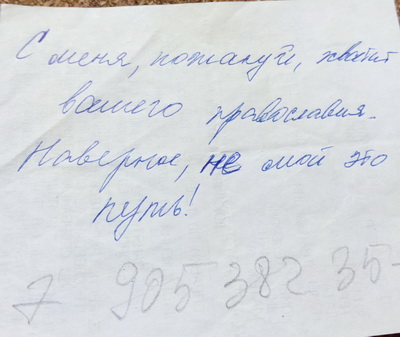 С меня, пожалуй, хватит
вашего православия.
Наверное, не мой это
путь!
7 905 382 35-